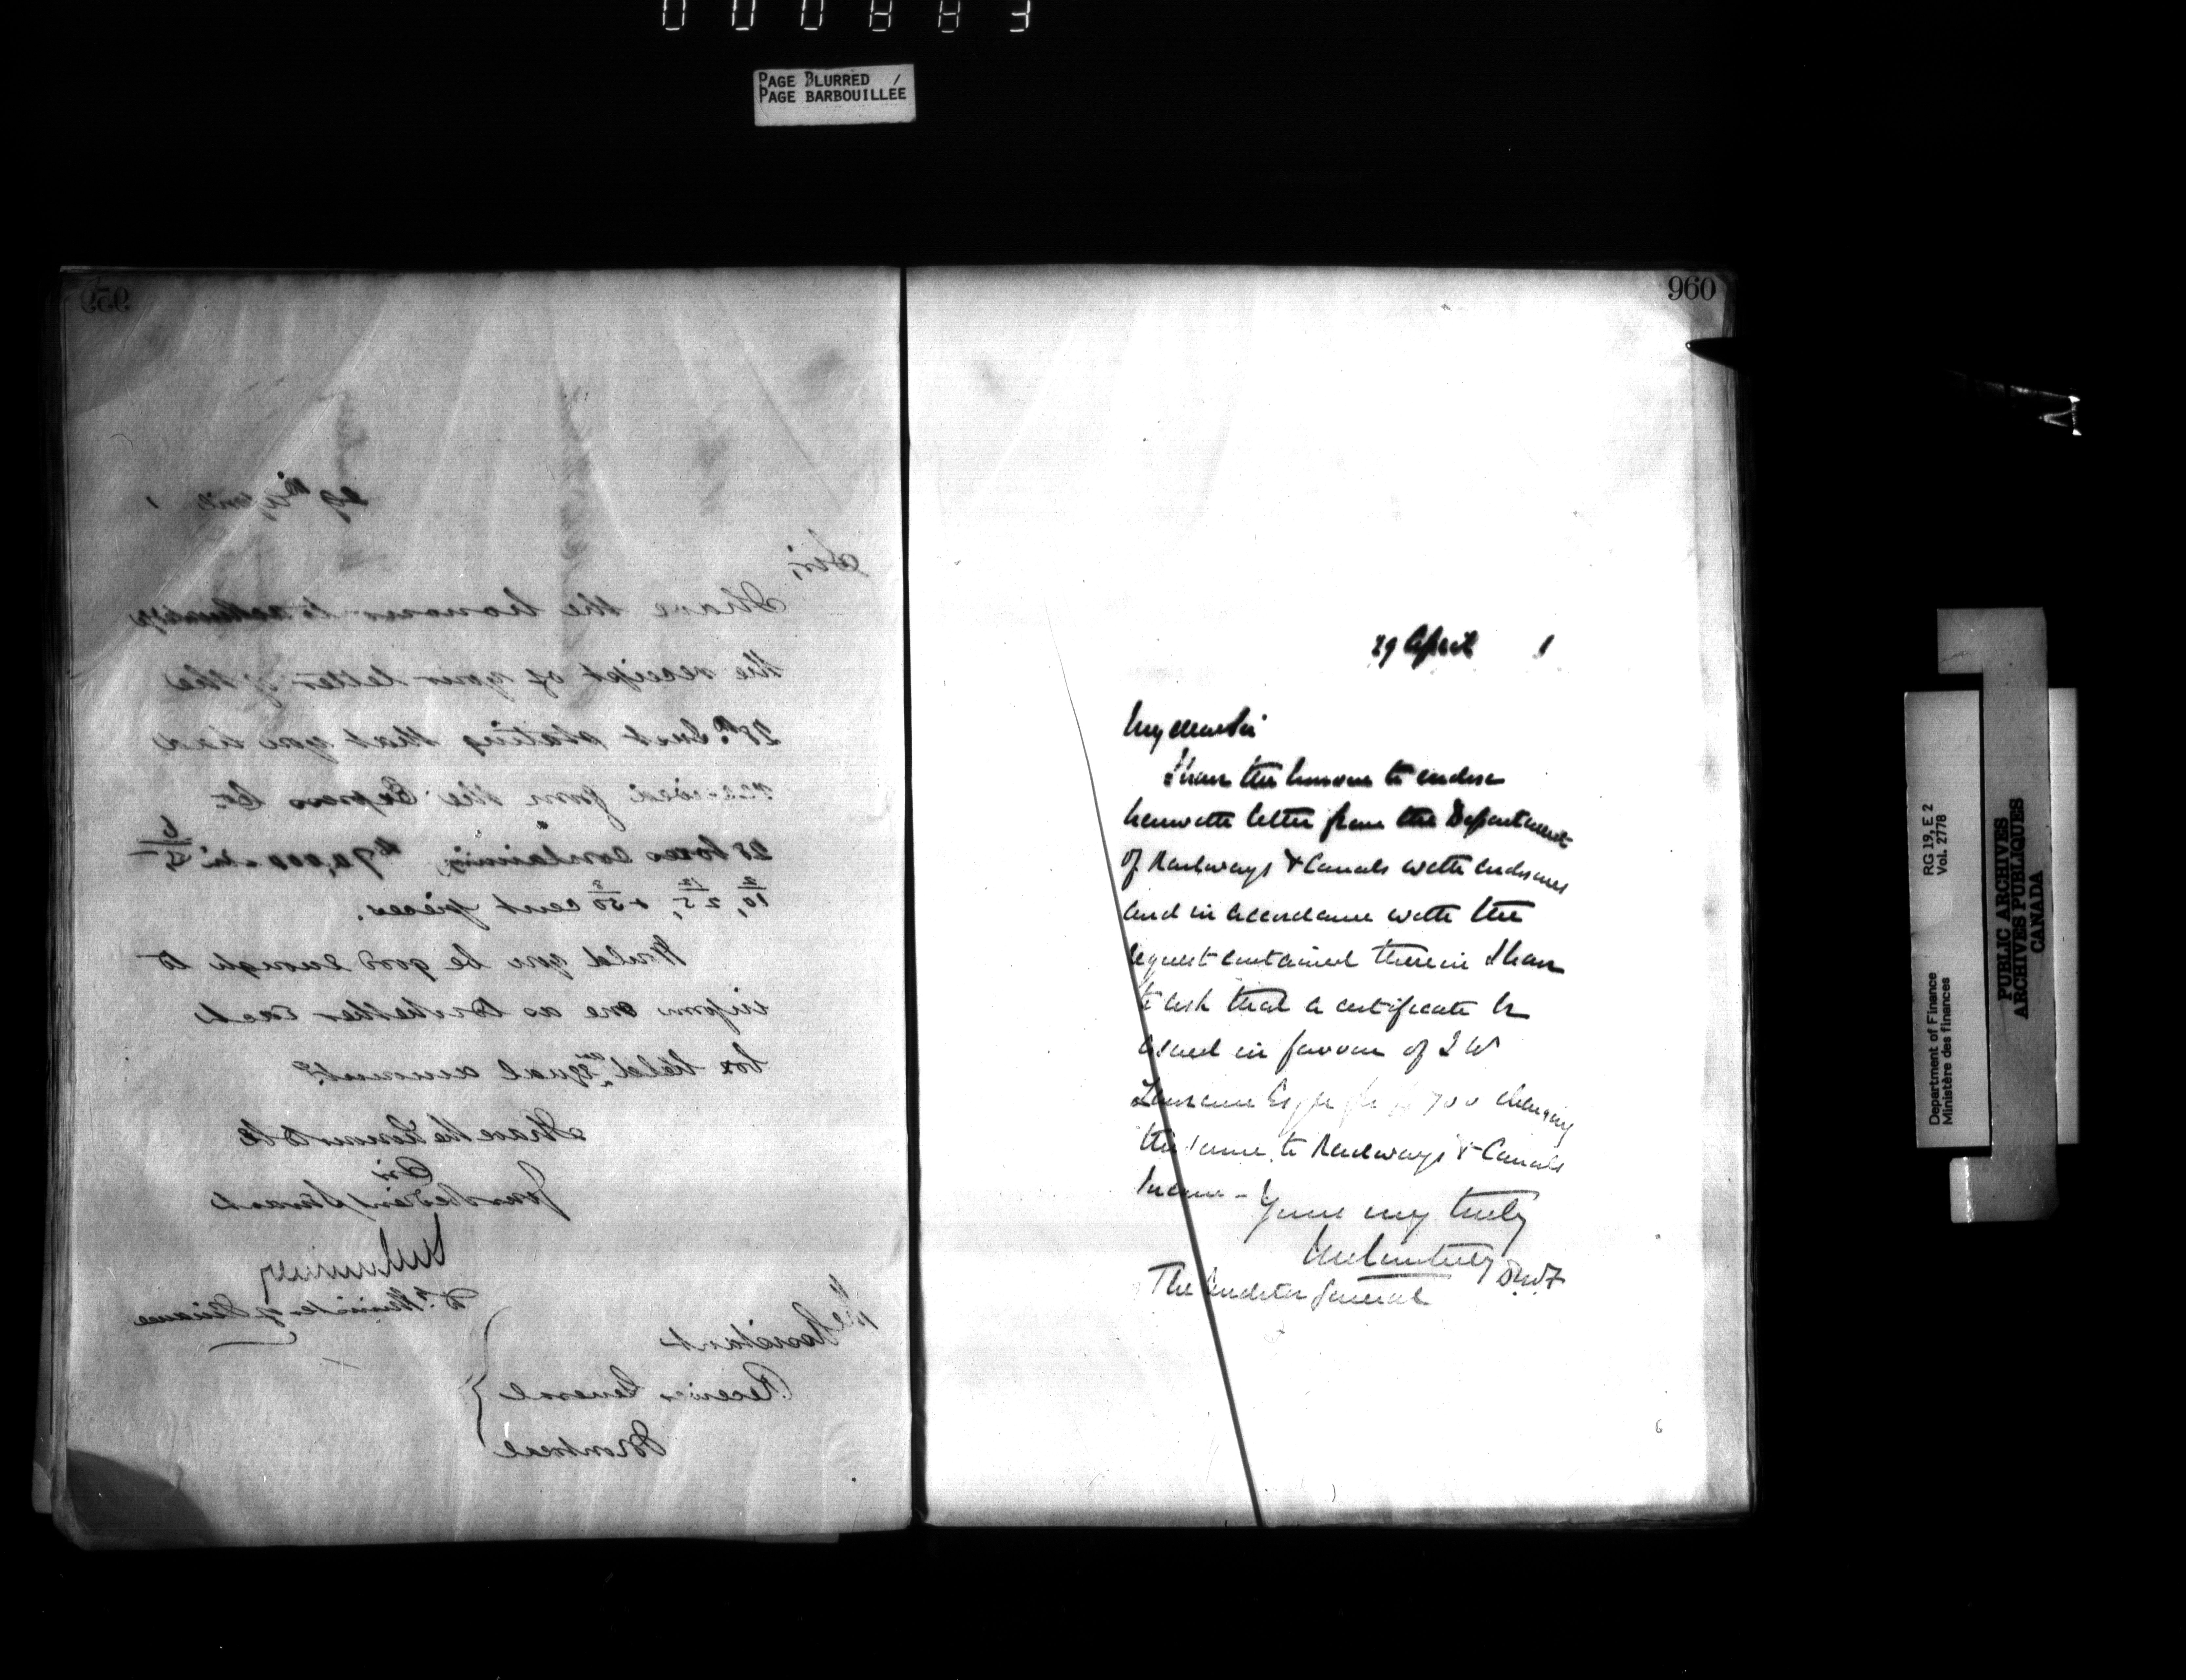 000883
PAGE BLURRED /
PAGE BARBOUILLÉE
959
29th April 1
Sir,
I have the honour to acknowledge
the receipt of your letter of the
28th Inst stating that you had
received from the Express Co.
28 boxes containing $70,000 in 5,
10, 25, & 50 cent pieces.
Would you be good enough to
inform me as to whether each
box held an equal amount?
I have the honour to be
Sir
Your obedient Servant
Dy Minister of Finance
The Assistant
Receiver General
Montreal
960
29 April 1
My dear Sir
I have the honour to enclose
herewith letter from the Department
of Railways & Canals with enclosures
and in accordance with the
request contained therein I have
to ask that a certificate be
issued in favour of
Esq for 700 charging
the same to Railways & Canals
Income - Yours very truly
J M Courtney D.M.F
The Auditor General
Department of Finance
Ministère des finances
RG 19, E 2
Vol. 2778
PUBLIC ARCHIVES
ARCHIVES PUBLIQUES
CANADA